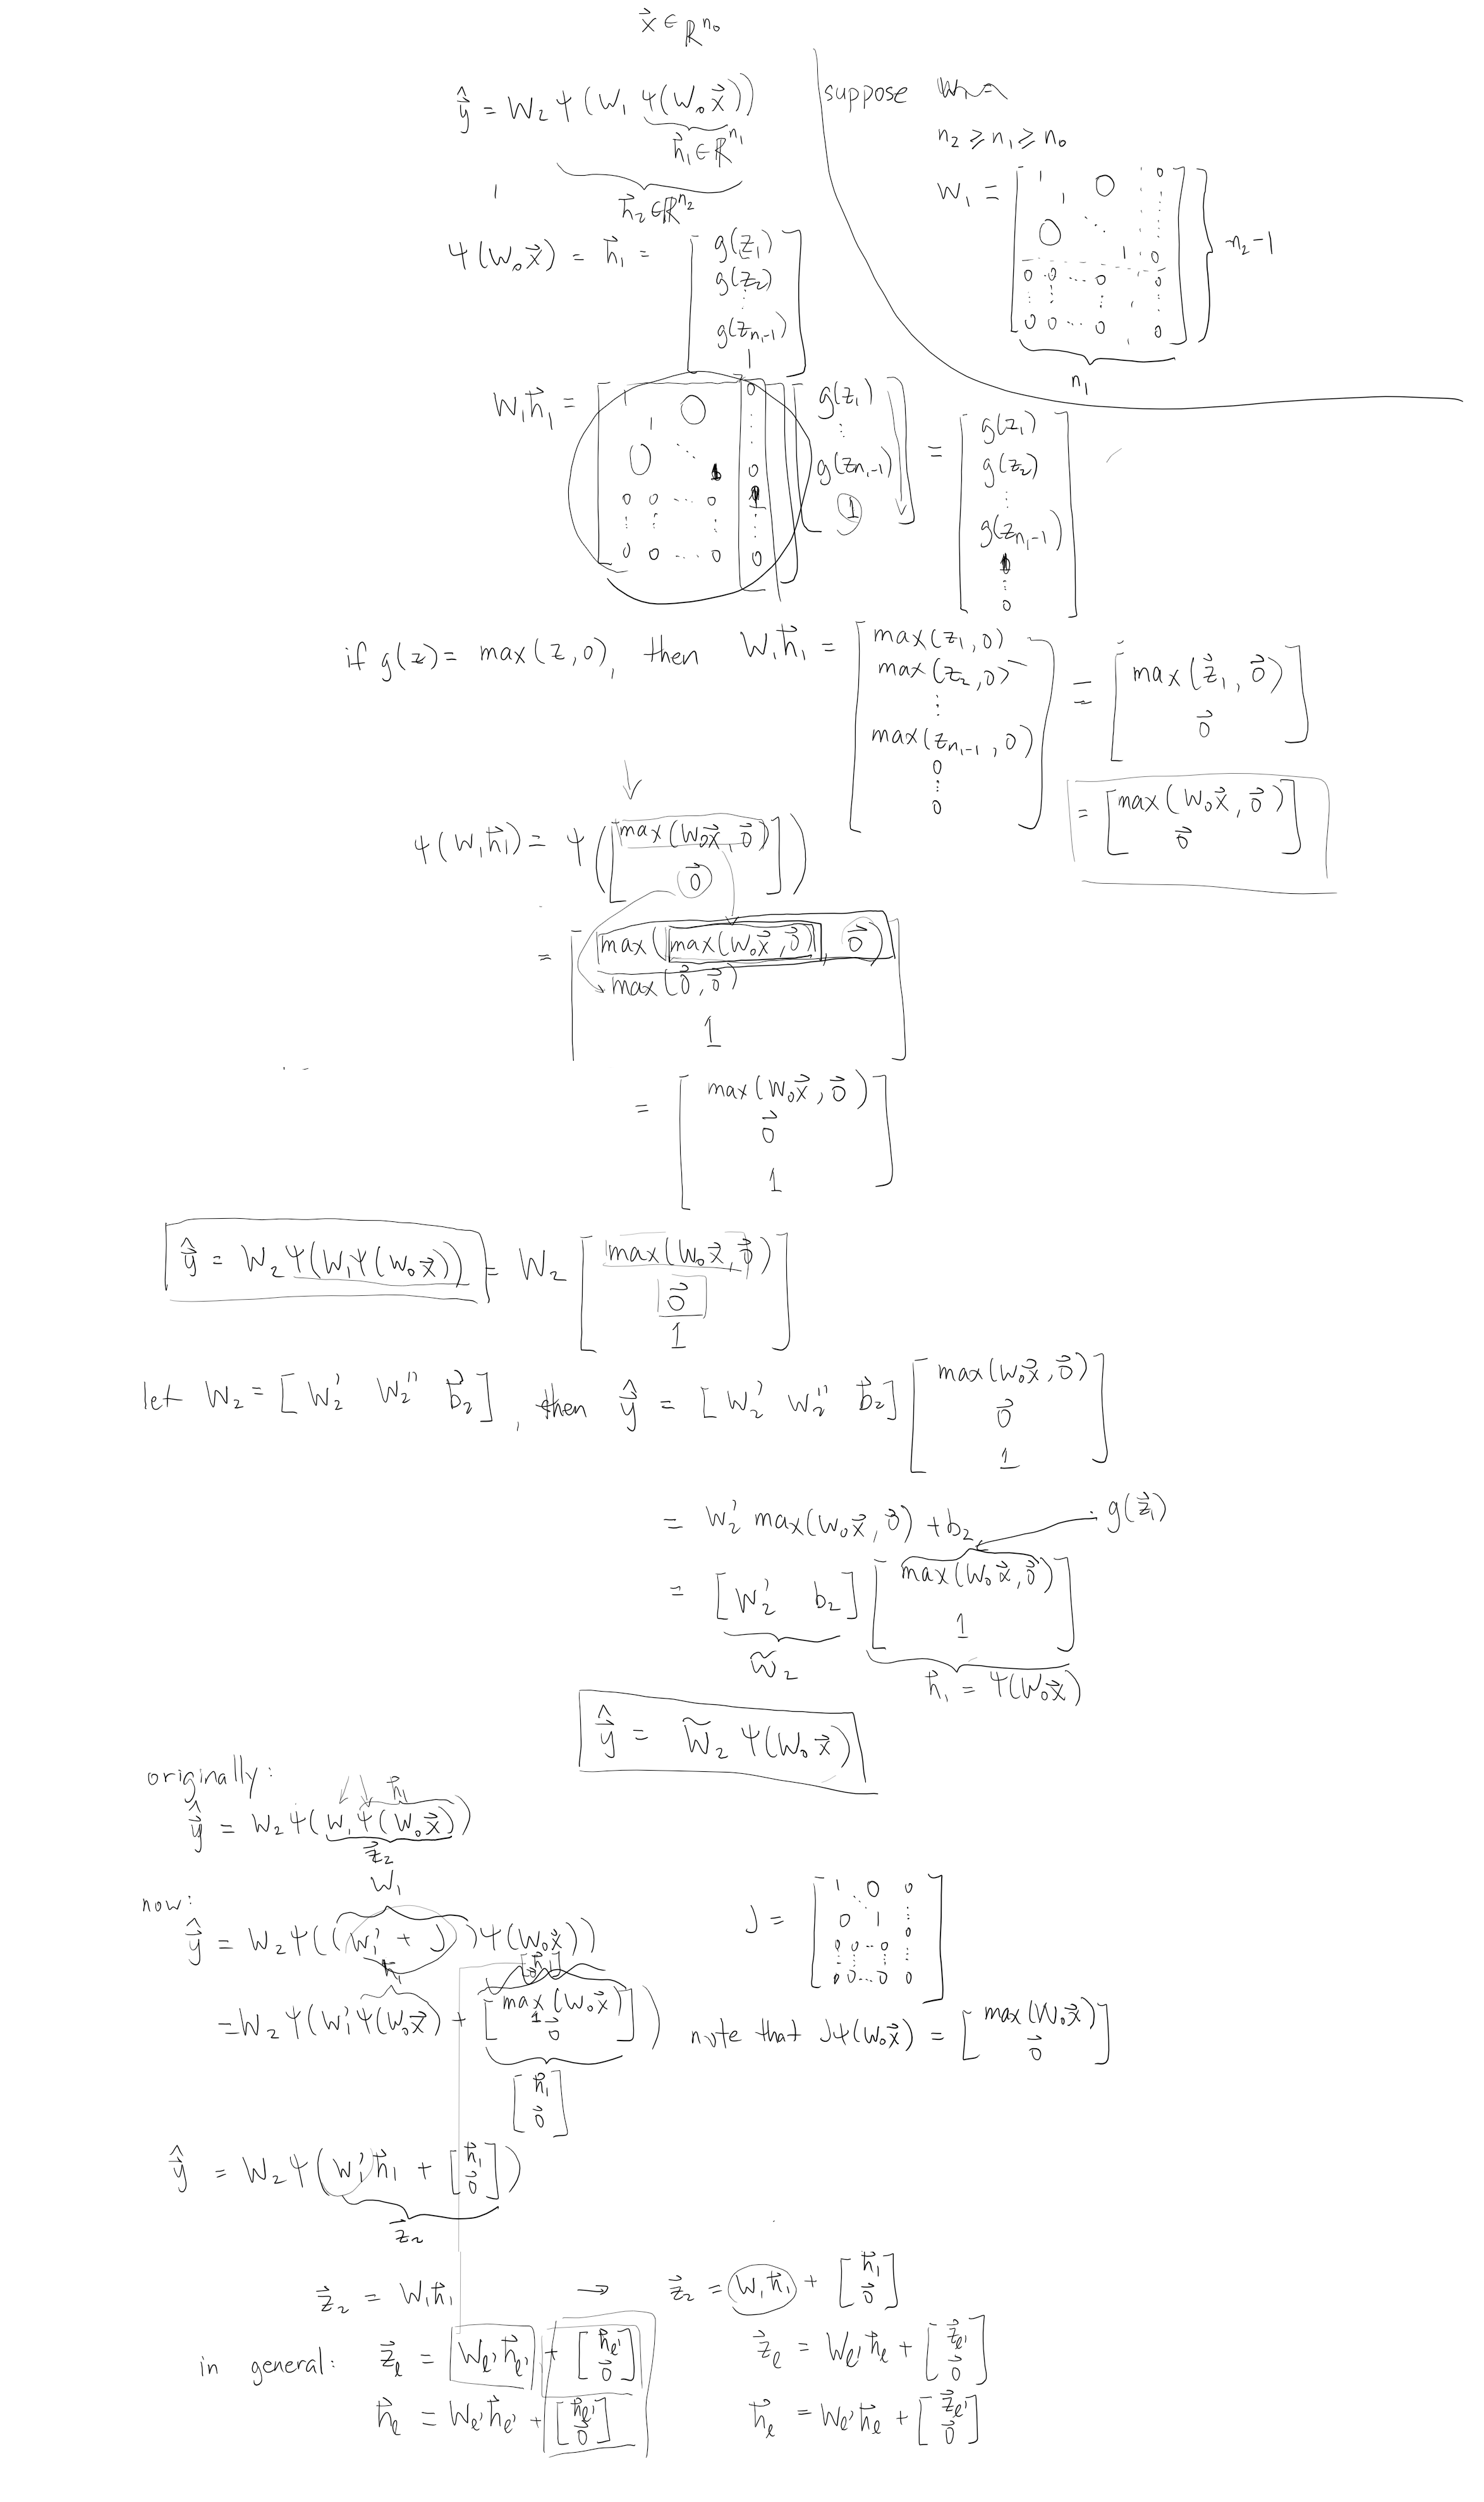 x⃗ ∈ ℝ^{n₀}
ŷ⃗ = W₂ Ψ(W₁ Ψ(W₀x⃗))
h⃗₁ ∈ ℝ^{n₁}
h⃗₂ ∈ ℝ^{n₂}
suppose
n₂ ⩾ n₁ ⩾ n₀
W₁ = [ 1 1 0 ⋱ 0 1 0 ⋮ 0 ; 0 0 ⋯ 0 0 ; ⋮ ⋮ ⋮ ⋮ ; 0 0 ⋯ 0 0 ] } n₂-1
n₁
Ψ(W₀x⃗) = h⃗₁ = [ g(z₁) ; g(z₂) ; ⋮ ; g(z_{n₁-1}) ; 1 ]
W₁h⃗₁ = [ 1 1 0 ⋱ 0 1 0 ⋮ 0 ; 0 0 ⋯ 0 1 ; ⋮ ⋮ ⋮ ⋮ ; 0 0 ⋯ 0 0 ] [ g(z₁) ; ⋮ ; g(z_{n₁-1}) ; 1 ] = [ g(z₁) ; g(z₂) ; ⋮ ; g(z_{n₁-1}) ; ⋮ ; 0 ]
if g(z) = max(z,0), then W₁h⃗₁ = [ max(z₁,0) ; max(z₂,0) ; ⋮ ; max(z_{n₁-1},0) ; 0 ; ⋮ ; 0 ] = [ max(z⃗₁, 0⃗) ; 0⃗ ]
= [ max(W₀x⃗, 0⃗) ; 0⃗ ]
Ψ(W₁h⃗₁) = Ψ([ max(W₀x⃗, 0⃗) ; 0⃗ ])
= [ max(max(W₀x⃗, 0⃗), 0⃗) ; max(0⃗, 0⃗) ; 1 ]
= [ max(W₀x⃗, 0⃗) ; 0⃗ ; 1 ]
ŷ⃗ = W₂Ψ(W₁Ψ(W₀x⃗)) = W₂ [ max(W₀x⃗, 0⃗) ; 0⃗ ; 1 ]
let W₂ = [ W₂' W₂'' b⃗₂ ], then ŷ⃗ = [ W₂' W₂'' b⃗₂ ] [ max(W₀x⃗, 0⃗) ; 0⃗ ; 1 ]
= W₂' max(W₀x⃗, 0⃗) + b₂
g(z⃗₁)
= [ W₂' b₂ ] [ max(W₀x⃗, 0⃗) ; 1 ]
W̃₂ h⃗₁ = Ψ(W₀x⃗)
ŷ⃗ = W̃₂ Ψ(W₀x⃗)
originally:
h⃗₁
ŷ⃗ = W₂Ψ(W₁Ψ(W₀x⃗))
z⃗₂
W₁
now:
ŷ⃗ = W₂Ψ((W₁' + J)Ψ(W₀x⃗))
J = [ 1 0 0 ; ⋱ ⋮ ; 0 1 0 ; 0 0 ⋯ 0 ⋮ ; ⋮ ⋮ ⋮ ⋮ ; 0 0 … 0 0 ]
h⃗₁
= W₂Ψ(W₁'Ψ(W₀x⃗) + [ max(W₀x⃗) ; 1 ; 0⃗ ]) note that JΨ(W₀x⃗) = [ max(W₀x⃗) ; 0⃗ ]
[ h⃗₁ ; 0⃗ ]
ŷ⃗ = W₂Ψ(W₁'h⃗₁ + [ h⃗₁ ; 0⃗ ])
z⃗₂
z⃗₂ = W₁h⃗₁ → z⃗₂ = W₁h⃗₁ + [ h⃗₁ ; 0⃗ ]
in general: z⃗_ℓ = W_ℓ' h⃗_ℓ' + [ h⃗_ℓ' ; 0⃗ ] z⃗_ℓ = W_ℓ' h⃗_ℓ + [ z⃗_ℓ' ; 0⃗ ]
h⃗_ℓ = W_ℓ' h⃗_ℓ' + [ h⃗_ℓ' ; 0⃗ ] h⃗_ℓ = W_ℓ' h⃗_ℓ + [ z⃗_ℓ' ; 0⃗ ]